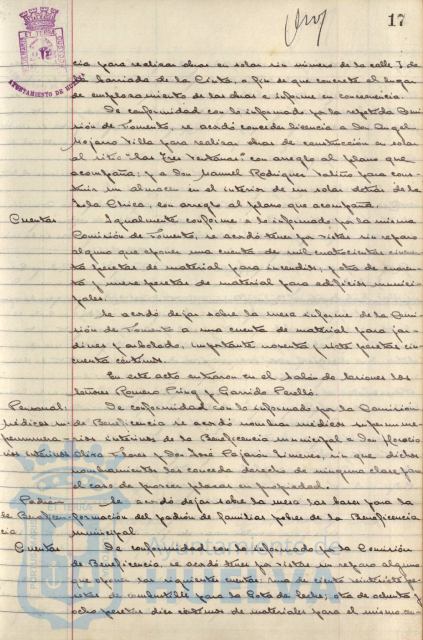 17
AYUNTAMIENTO DE HUELVA
cia para realizar obras en solar sin número de la calle J de
la barriada de la Cinta, a fin de que concrete el lugar
de emplazamiento de las obras e informe en consecuencia.
De conformidad con lo informado por la repetida Comi
sión de Fomento, se acordó conceder licencia a Don Angel
Mojarro Villa para realizar obras de construcción en solar
al sitio "Las Tres Ventanas" con arreglo al plano que
acompaña; y a Don Manuel Rodriguez para cons
truir un almacen en el interior de un solar detrás de la
Isla Chica, con arreglo al plano que acompaña.
Cuentas
Igualmente conforme a lo informado por la misma
Comisión de Fomento, se acordó tener por vistas sin reparo
alguno que oponer una cuenta de mil cuatrocientas cincuen
ta pesetas de material para incendios, y otra de cuaren
ta y nueve pesetas de material para edificios munici
pales.
Se acordó dejar sobre la mesa informe de la Comi
sión de Fomento a una cuenta de material para jar
dines y arbolado, importante noventa y siete pesetas cin
cuenta céntimos.
En este acto entraron en el Salón de Sesiones los
Señores Romero Pring y Garrido Perelló.
Personal:
Médicos su-
pernumera
rios interinos
De conformidad con lo informado por la Comisión
de Beneficencia se acordó nombrar médicos supernume
rarios interinos de la Beneficencia municipal a Don Florencio
Flores y Don José Pajarón Jimenez, sin que dichos
nombramientos les conceda derecho de ninguna clase para
el caso de proveer plazas en propiedad.
Padrón
de Benefi-
cia
Se acordó dejar sobre la mesa las bases para la
formación del padrón de familias pobres de la Beneficencia
municipal.
Cuentas
De conformidad con lo informado por la Comisión
de Beneficencia, se acordó tener por vistas sin reparo alguno
que oponer las siguientes cuentas: una de ciento veintisiete pe
setas de combustible para la Gota de leche; otra de ochenta y
ocho pesetas diez céntimos de materiales para el mismo